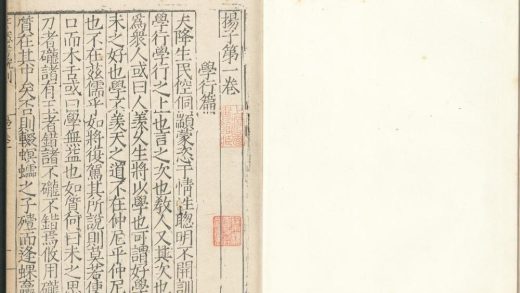 揚子第一卷
學行篇
天降生民倥侗顓蒙恣于情性聦明不開訓
學行學行之上也言之次也教人又其次也
爲衆人或曰人羨久生將以學也可謂好學
未之好也學不羨天之道不在仲尼乎仲尼
也不在茲儒乎如將復駕其所說則莫若使
口而木舌或曰學無益也如質何曰未之思
刀者礲諸有玉者錯諸不礲不錯焉攸用礲
質在其中矣否則輟螟蠕之子殪而逢蜾蠃